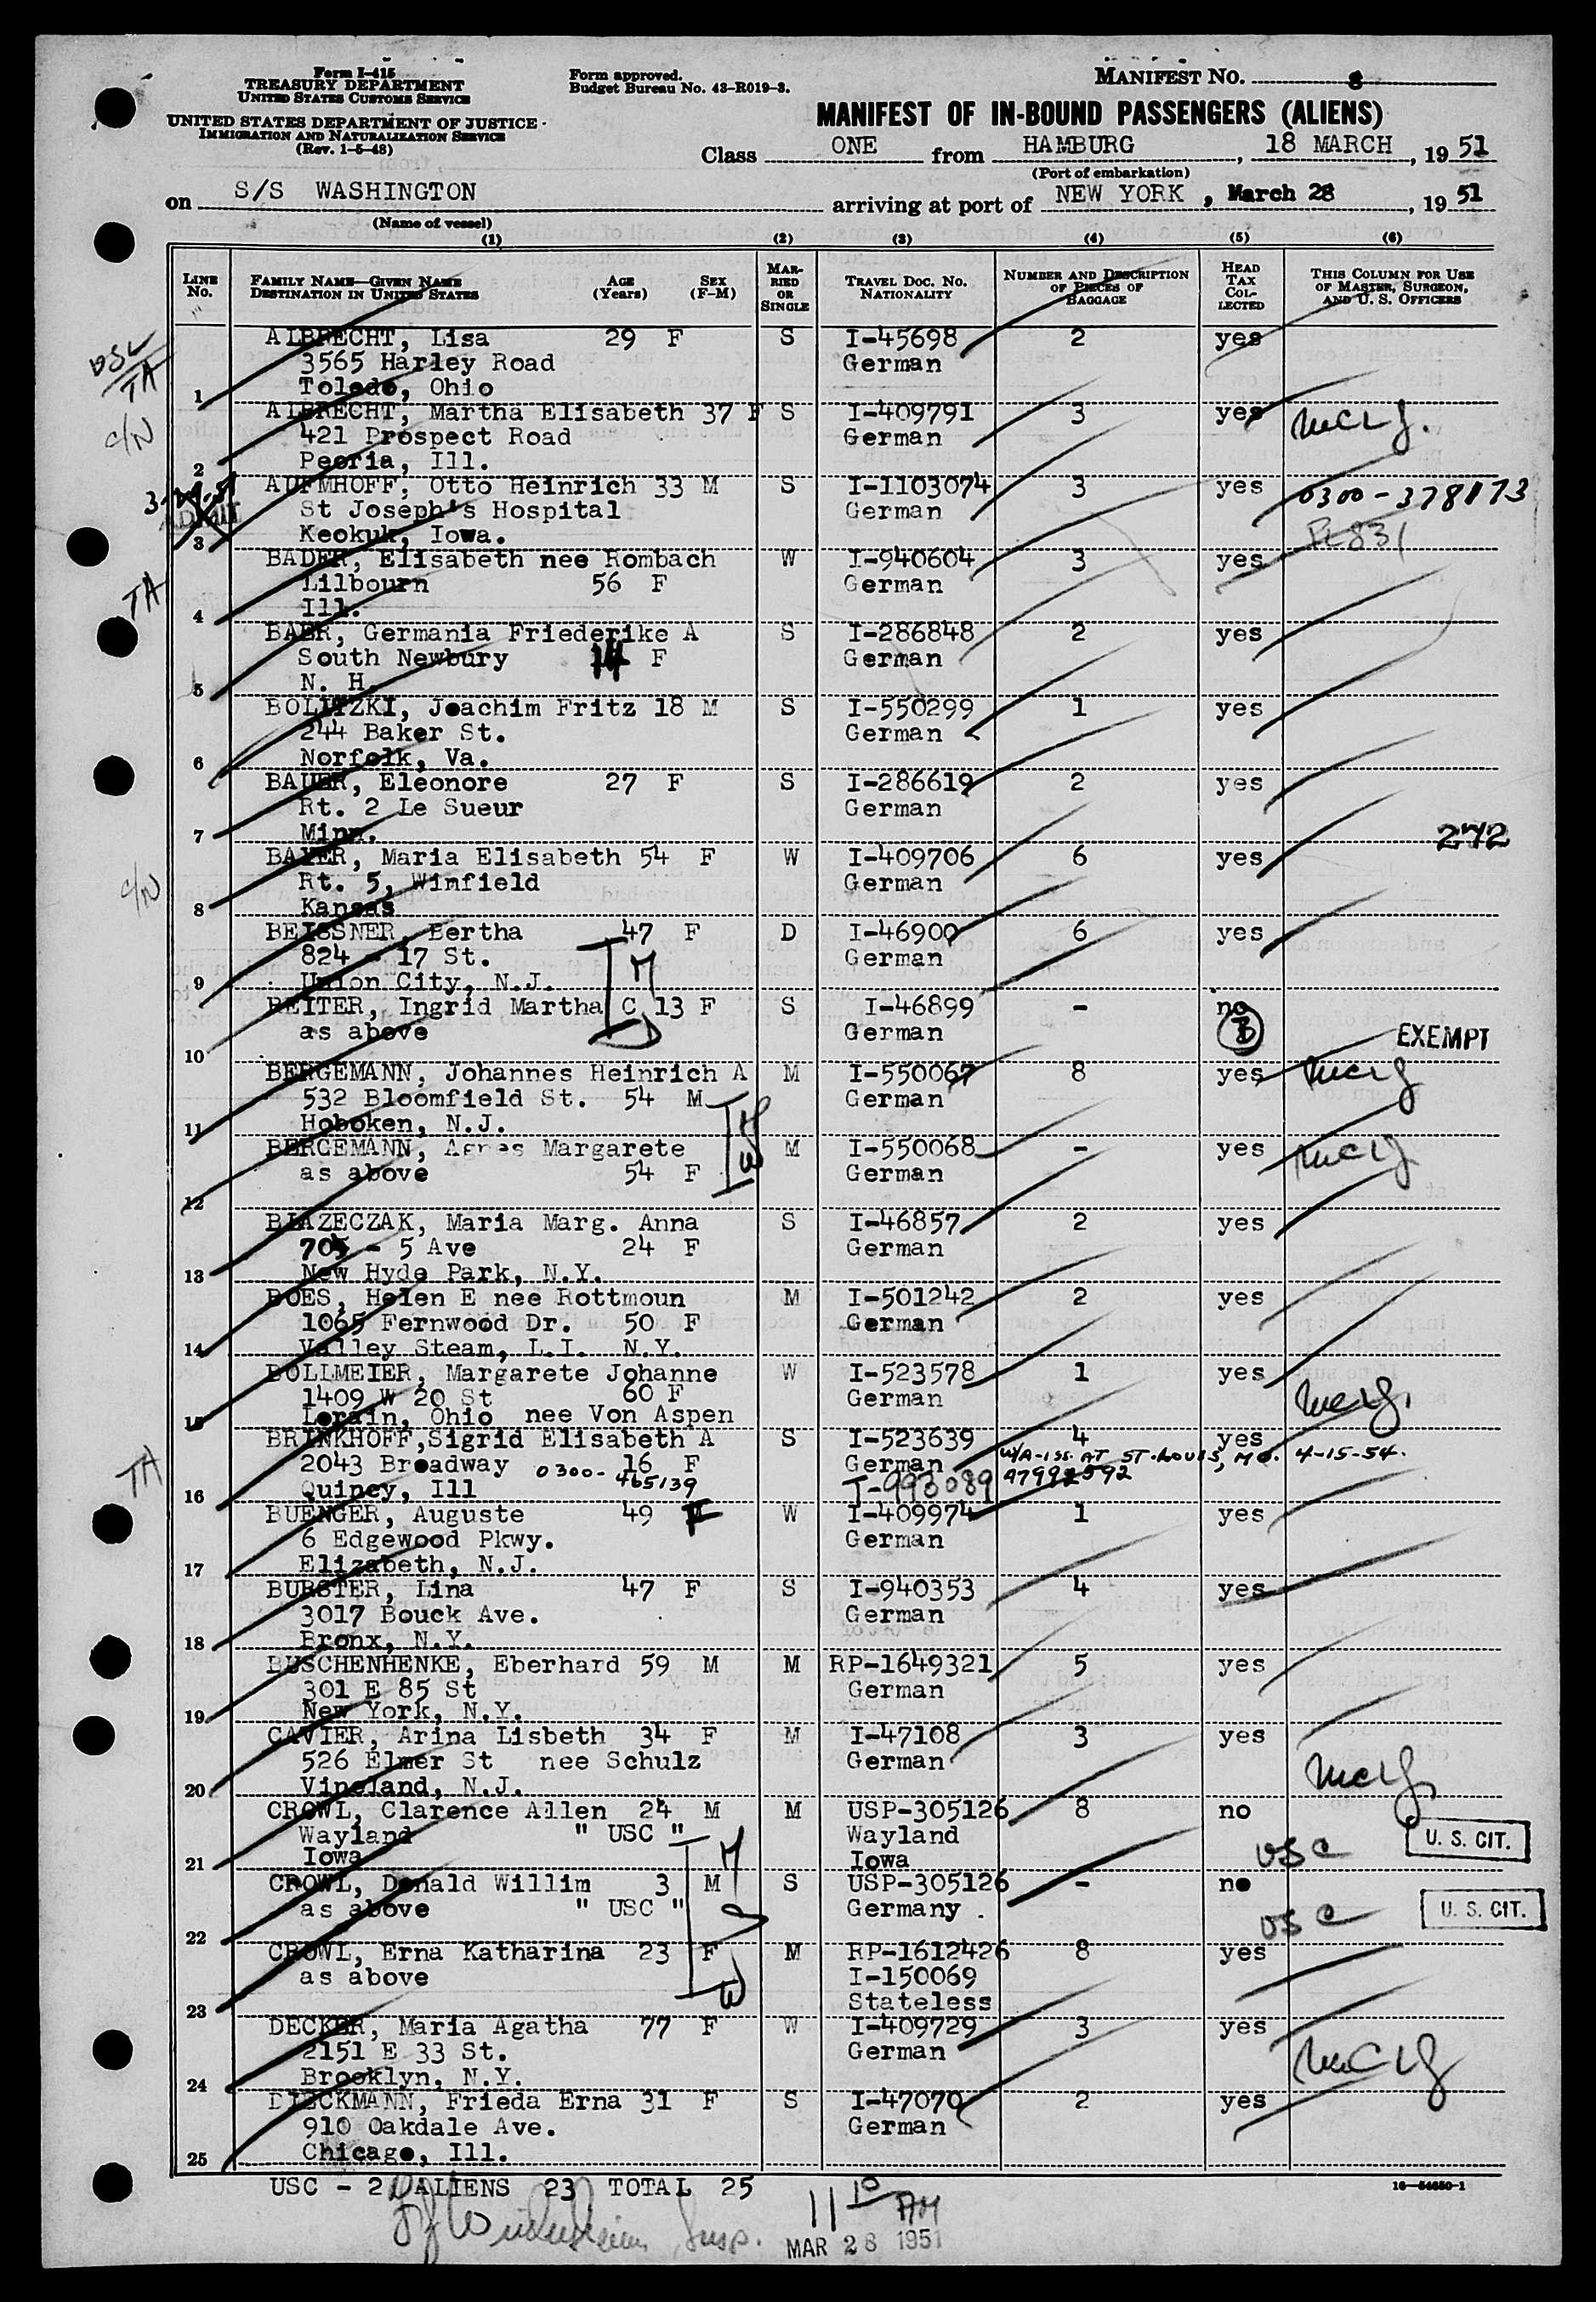 Form I-415
TREASURY DEPARTMENT
UNITED STATES CUSTOMS SERVICE
UNITED STATES DEPARTMENT OF JUSTICE
IMMIGRATION AND NATURALIZATION SERVICE
(Rev. 1-5-48)
Form approved.
Budget Bureau No. 43-R019-3.
MANIFEST NO. 8
MANIFEST OF IN-BOUND PASSENGERS (ALIENS)
Class ONE from HAMBURG, 18 MARCH, 1951
(Port of embarkation)
on S/S WASHINGTON arriving at port of NEW YORK, March 28, 1951
(Name of vessel)
(1) (2) (3) (4) (5) (6)
LINE NO. FAMILY NAME—GIVEN NAME DESTINATION IN UNITED STATES AGE (Years) SEX (F-M) MARRIED OR SINGLE TRAVEL DOC. NO. NATIONALITY NUMBER AND DESCRIPTION OF PIECES OF BAGGAGE HEAD TAX COLLECTED THIS COLUMN FOR USE OF MASTER, SURGEON, AND U. S. OFFICERS
ALBRECHT, Lisa 29 F S I-45698 2 yes
3565 Harley Road German
TA
1 Toledo, Ohio
C/N
ALBRECHT, Martha Elisabeth 37 F S I-409791 3 yes
421 Prospect Road German
2 Peoria, Ill.
AUFMHOFF, Otto Heinrich 33 M S I-1103074 3 yes 0300-378173
ADMIT
St Joseph's Hospital German
3 Keokuk, Iowa.
BADER, Elisabeth nee Rombach W I-940604 3 yes
TA
Lilbourn 56 F German
4 Ill.
BAER, Germania Friederike A S I-286848 2 yes
South Newbury 14 F German
5 N. H.
BOLITZKI, Joachim Fritz 18 M S I-550299 1 yes
244 Baker St. German
6 Norfolk, Va.
BAUER, Eleonore 27 F S I-286619 2 yes
Rt. 2 Le Sueur German
7 Minn. 272
BAYER, Maria Elisabeth 54 F W I-409706 6 yes
C/N
Rt. 5, Winfield German
8 Kansas
BEISSNER, Bertha 47 F D I-46900 6 yes
824 - 17 St. German
9 Union City, N.J.
REITER, Ingrid Martha C 13 F S I-46899 - no
as above German EXEMPT
10
BERGEMANN, Johannes Heinrich A M I-550067 8 yes
532 Bloomfield St. 54 M German
11 Hoboken, N.J.
BERGEMANN, Agnes Margarete M I-550068 - yes
as above 54 F German
12
BLAZECZAK, Maria Marg. Anna S I-46857 2 yes
705 - 5 Ave 24 F German
13 New Hyde Park, N.Y.
BOES, Helen E nee Rottmoun M I-501242 2 yes
1065 Fernwood Dr. 50 F German
14 Valley Steam, L.I. N.Y.
BOLLMEIER, Margarete Johanne W I-523578 1 yes
1409 W 20 St 60 F German
15 Lorain, Ohio nee Von Aspen
BRINKHOFF, Sigrid Elisabeth A S I-523639 4 yes
TA
2043 Broadway 0300-465139 16 F German W/A-ISS. AT ST. LOUIS, MO. 4-15-54.
16 Quincy, Ill T-993089
BUENGER, Auguste 49 F W I-409974 1 yes
6 Edgewood Pkwy. German
17 Elizabeth, N.J.
BURSTER, Lina 47 F S I-940353 4 yes
3017 Bouck Ave. German
18 Bronx, N.Y.
BUSCHENHENKE, Eberhard 59 M M RP-1649321 5 yes
301 E 85 St German
19 New York, N.Y.
CAVIER, Arina Lisbeth 34 F M I-47108 3 yes
526 Elmer St nee Schulz German
20 Vineland, N.J.
CROWL, Clarence Allen 24 M M USP-305126 8 no
Wayland " USC " Wayland USC U. S. CIT.
21 Iowa Iowa
CROWL, Donald Willim 3 M S USP-305126 - no
as above " USC " Germany. USC U. S. CIT.
22
CROWL, Erna Katharina 23 F M RP-1612426 8 yes
as above I-150069
23 Stateless
DECKER, Maria Agatha 77 F W I-409729 3 yes
2151 E 33 St. German
24 Brooklyn, N.Y.
DIECKMANN, Frieda Erna 31 F S I-47070 2 yes
910 Oakdale Ave. German
25 Chicago, Ill.
USC - 2 ALIENS 23 TOTAL 25
16—54650-1
11 10 AM
Insp.
MAR 28 1951